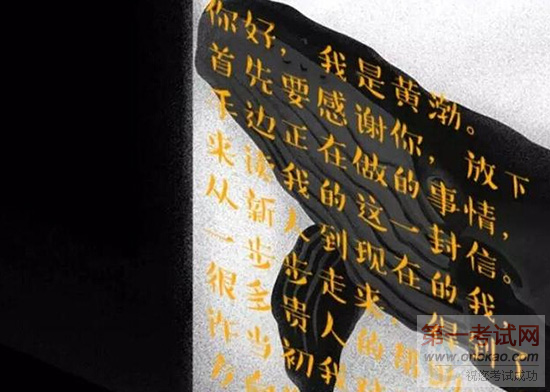 你好，我是黄渤。
首先要感谢你，放下
手边正在做的事情，
来读我的这一封信。
从新人到现在的我，
一步步走来，得到了
很多贵人的帮
许当初我
第一考试网
www.onekao.com
祝您考试成功